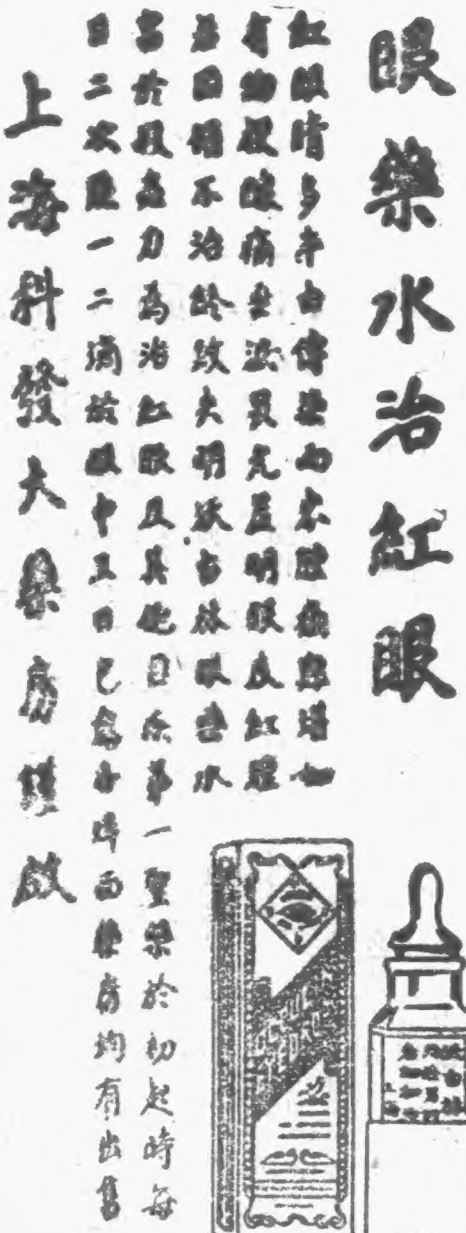 眼藥水治紅眼
紅眼睛多半由傳染而來酸痛怒增如
有物侵睫痛金淚畏光並明眼皮紅腫
並因循不治終致失明沃古林眼藥水
富於殺蟲力為治紅眼及其他目疾第一聖藥於初起時每
日二次點一二滴於眼中五日已愈各埠西藥房均有出售
上海科發大藥房謹啟